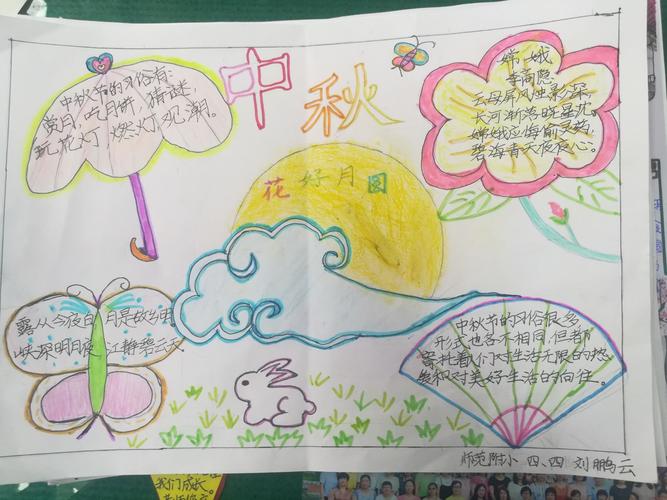 中秋
中秋节的习俗有:
赏月,吃月饼,猜谜,
玩花灯,燃灯,观潮。
嫦娥
李商隐
云母屏风烛影深
长河渐落晓星沈。
嫦娥应悔偷灵药,
碧海青天夜夜心。
花好月圆
露从今夜白 月是故乡明
峡深明月夜 江静碧云天
中秋节的习俗很多
形式也各不相同,但都
寄托着人们对生活无限的热
爱和对美好生活的向往。
师范附小 四、四 刘鹏云
我们成长